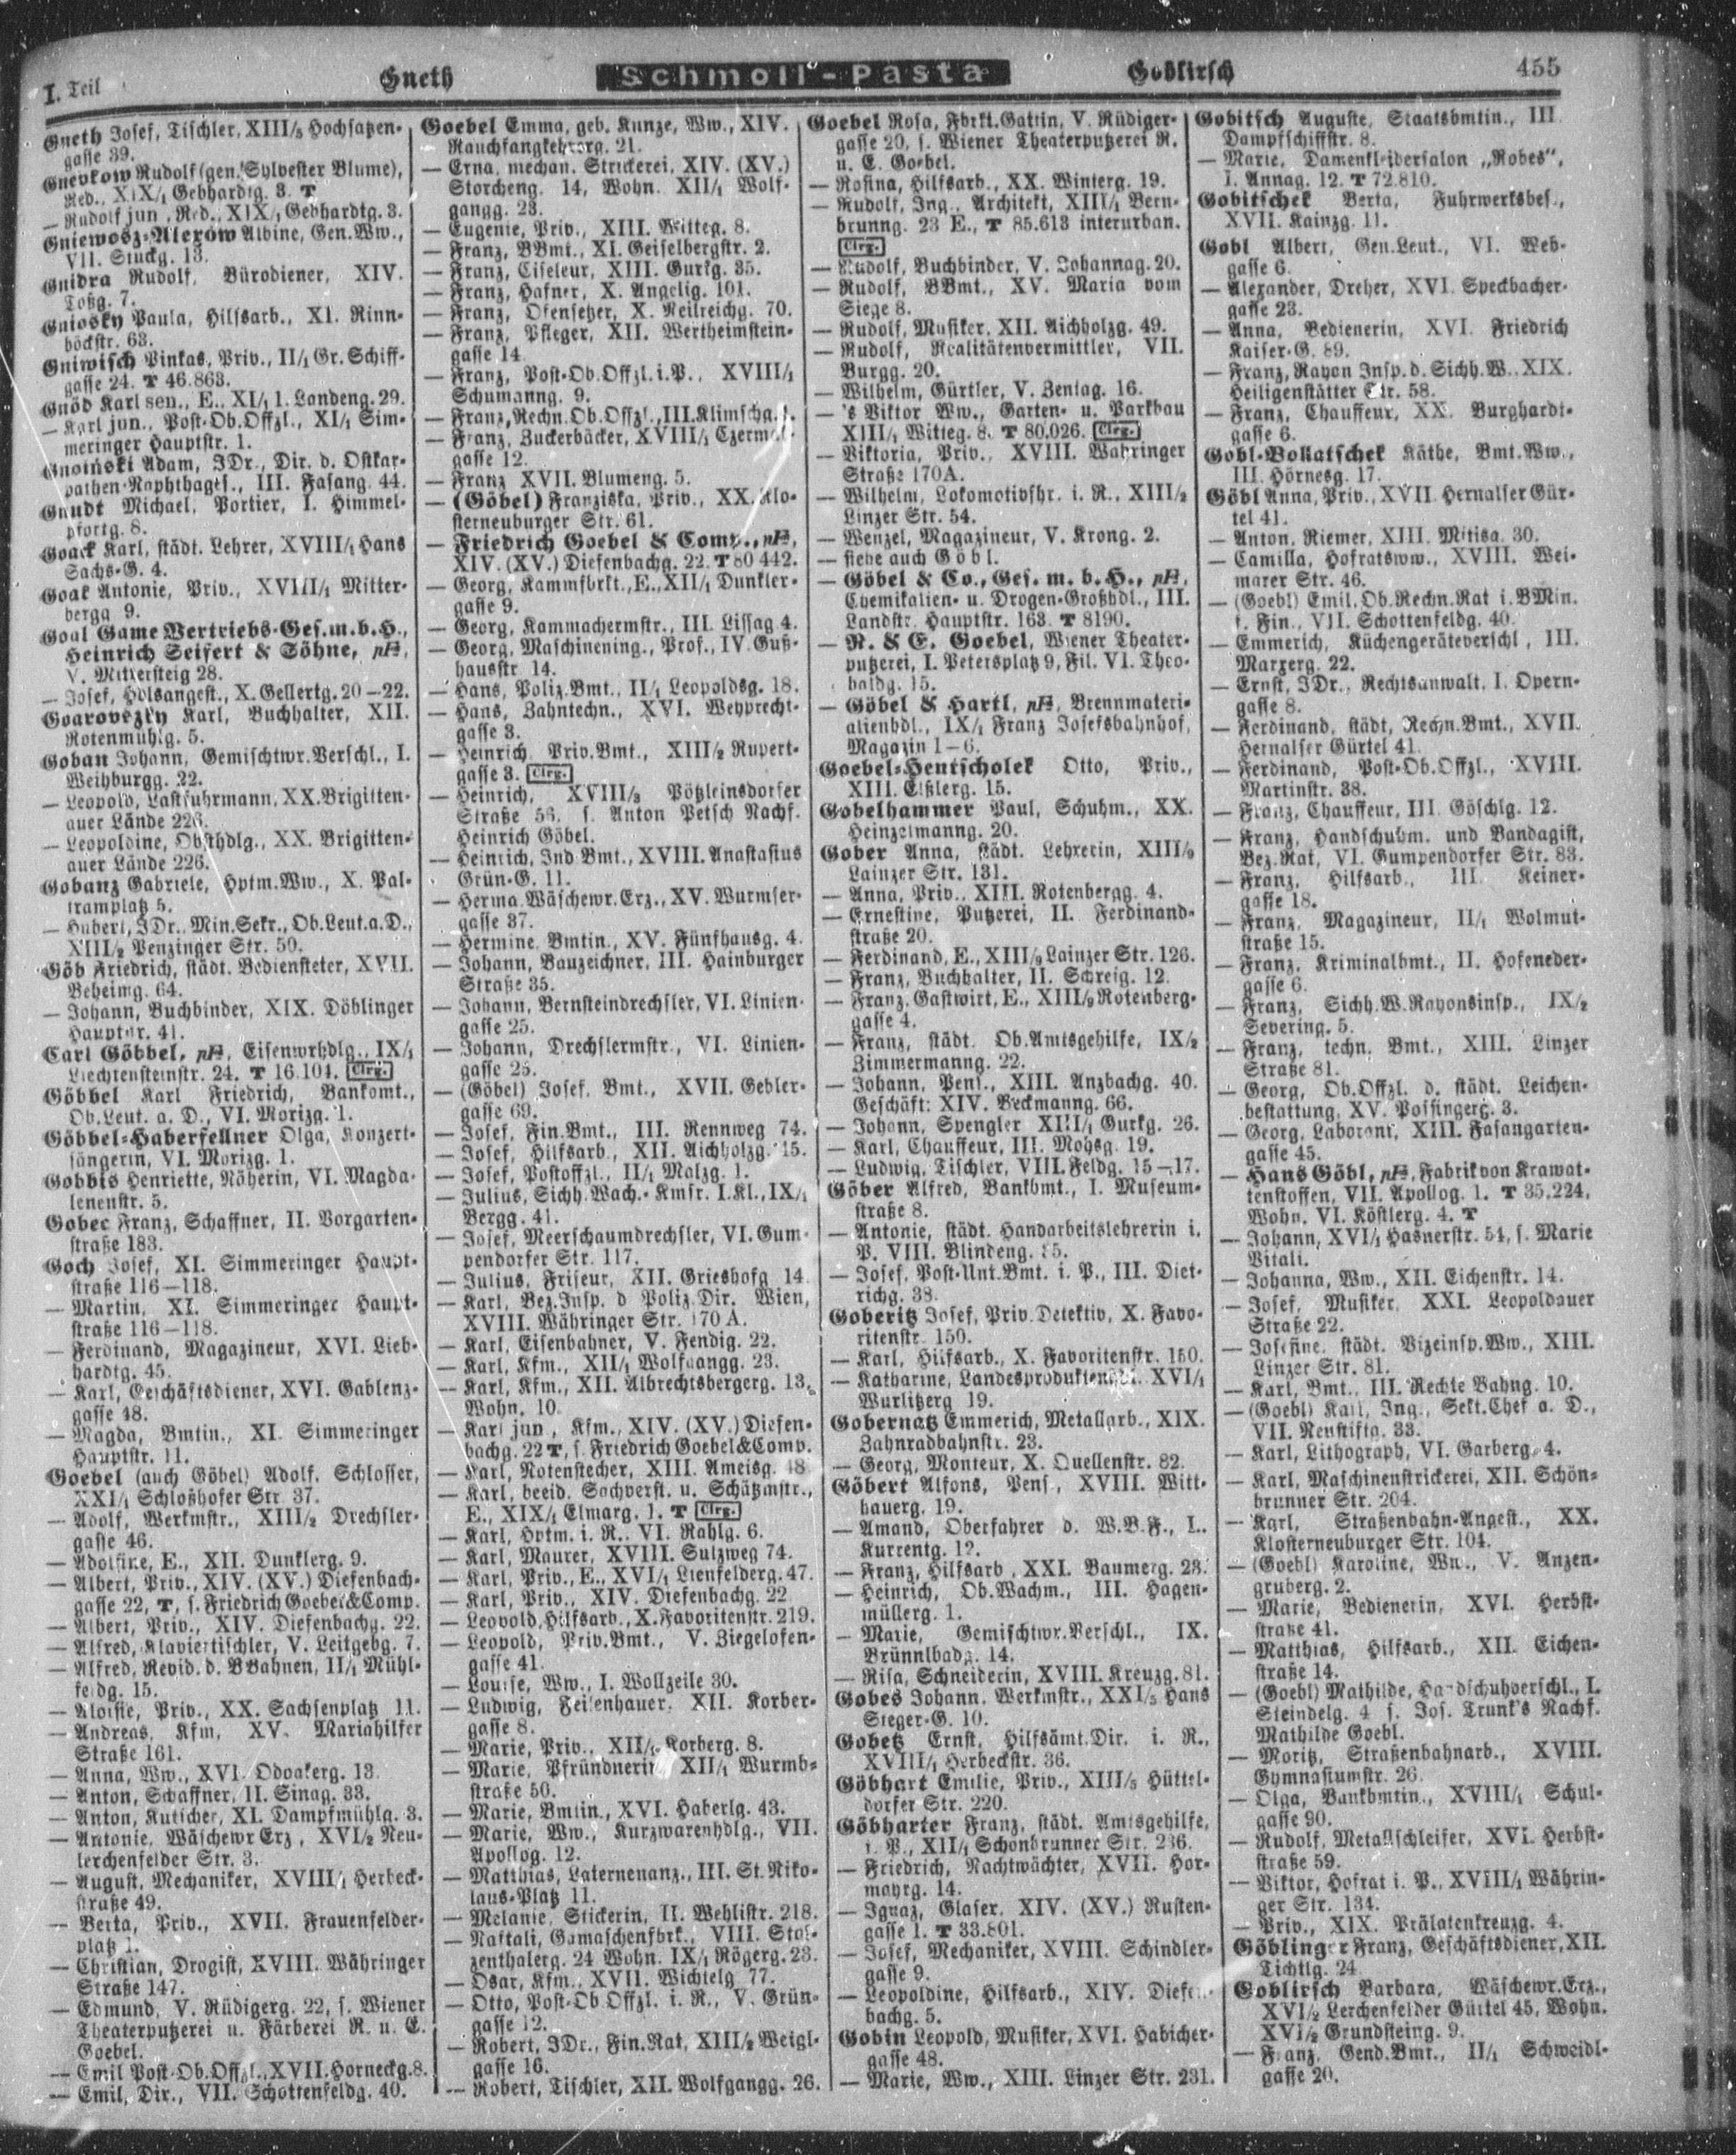 I. Teil
Gneth
Schmoll-Pasta
Goblirsch
455
Gneth Josef, Tischler, XIII/5 Hochsatzen-
gasse 39.
Gnevkow Rudolf (gen. Sylvester Blume),
Red., XIX/1 Gebhardtg. 3. T
— Rudolf jun., Red., XIX/1 Gebhardtg. 3.
Gniewosz-Alexów Albine, Gen.Ww.,
VII. Stuckg. 13.
Gnidra Rudolf, Bürodiener, XIV.
Toßg. 7.
Gniosky Paula, Hilfsarb., XI. Rinn-
böckstr. 63.
Gniwisch Pinkas, Priv., II/1 Gr. Schiff-
gasse 24. T 46.863.
Gnöd Karl sen., E., XI/1 1. Landeng. 29.
— Karl jun., Post-Ob.Offzl., XI/1 Sim-
meringer Hauptstr. 1.
Gnoiński Adam, JDr., Dir. d. Ostkar-
pathen-Naphthages., III. Fasang. 44.
Gnudt Michael, Portier, I. Himmel-
pfortg. 8.
Goack Karl, städt. Lehrer, XVIII/1 Hans
Sachs-G. 4.
Goak Antonie, Priv., XVIII/1 Mitter-
bergg 9.
Goal Game Vertriebs-Ges.m.b.H.,
Heinrich Seifert & Söhne, pH,
V. Mittersteig 28.
— Josef, Hdlsangest., X. Gellertg. 20—22.
Goarovezky Karl, Buchhalter, XII.
Rotenmühlg. 5.
Goban Johann, Gemischtwr.Verschl., I.
Weihburgg. 22.
— Leopold, Lastfuhrmann, XX. Brigitten-
auer Lände 226.
— Leopoldine, Obsthdlg., XX. Brigitten-
auer Lände 226.
Gobanz Gabriele, Hptm.Ww., X. Pal-
tramplatz 5.
— Hubert, JDr., Min.Sekr., Ob.Leut.a.D.,
XIII/2 Penzinger Str. 50.
Göb Friedrich, städt. Bediensteter, XVII.
Beheimg. 64.
— Johann, Buchbinder, XIX. Döblinger
Hauptstr. 41.
Carl Göbbel, pH, Eisenwrhdlg., IX/1
Liechtensteinstr. 24. T 16.104. Clrg.
Göbbel Karl Friedrich, Bankomt.,
Ob.Leut. a. D., VI. Morizg. 1.
Göbbel-Haberfellner Olga, Konzert-
sängerin, VI. Morizg. 1.
Gobbis Henriette, Näherin, VI. Magda-
lenenstr. 5.
Gobec Franz, Schaffner, II. Vorgarten-
straße 183.
Goch Josef, XI. Simmeringer Haupt-
straße 116—118.
— Martin, XI. Simmeringer Haupt-
straße 116—118.
— Ferdinand, Magazineur, XVI. Lieb-
hardtg. 45.
— Karl, Geschäftsdiener, XVI. Gablenz-
gasse 48.
— Magda, Bmtin., XI. Simmeringer
Hauptstr. 11.
Goebel (auch Göbel) Adolf, Schlosser,
XXI/1 Schloßhofer Str. 37.
— Adolf, Werkmstr., XIII/2 Drechsler-
gasse 46.
— Adolfine, E., XII. Dunklerg. 9.
— Albert, Priv., XIV. (XV.) Diefenbach-
gasse 22, T, s. Friedrich Goebel&Comp.
— Albert, Priv., XIV. Diefenbachg. 22.
— Alfred, Klaviertischler, V. Leitgebg. 7.
— Alfred, Revid. d. BBahnen, II/1 Mühl-
feldg. 15.
— Aloisie, Priv., XX. Sachsenplatz 11.
— Andreas, Kfm, XV. Mariahilfer
Straße 161.
— Anna, Ww., XVI. Odoakerg. 13.
— Anton, Schaffner, II. Sinag. 33.
— Anton, Kutscher, XI. Dampfmühlg. 3.
— Antonie, WäschewrErz., XVI/2 Neu-
lerchenfelder Str. 3.
— August, Mechaniker, XVIII/1 Herbeck-
straße 49.
— Berta, Priv., XVII. Frauenfelder-
platz 1.
— Christian, Drogist, XVIII. Währinger
Straße 147.
— Edmund, V. Rüdigerg. 22, s. Wiener
Theaterputzerei u. Färberei R. u. E.
Goebel.
— Emil Post-Ob.Offzl., XVII. Horneckg. 8.
— Emil, Dir., VII. Schottenfeldg. 40.
Goebel Emma, geb. Kunze, Ww., XIV.
Rauchfangkehrerg. 21.
— Erna, mechan. Strickerei, XIV. (XV.)
Storcheng. 14, Wohn. XII/1 Wolf-
gangg. 23.
— Eugenie, Priv., XIII. Witteg. 8.
— Franz, BBmt., XI. Geiselbergstr. 2.
— Franz, Ciseleur, XIII. Gurkg. 35.
— Franz, Hafner, X. Angelig. 101.
— Franz, Ofensetzer, X. Neilreichg. 70.
— Franz, Pfleger, XII. Wertheimstein-
gasse 14
— Franz, Post-Ob.Offzl.i.P., XVIII/1
Schumanng. 9.
— Franz, Rechn.Ob.Offzl., III. Klimschg.
— Franz, Zuckerbäcker, XVIII/1 Czermak-
gasse 12.
— Franz XVII. Blumeng. 5.
— (Göbel) Franziska, Priv., XX. Klo-
sterneuburger Str. 61.
— Friedrich Goebel & Comp., pH,
XIV. (XV.) Diefenbachg. 22. T 80 442.
— Georg, Kammfbrkt., E., XII/1 Dunkler-
gasse 9.
— Georg, Kammachermstr., III. Lissag. 4.
— Georg, Maschinening., Prof., IV. Guß-
hausstr. 14.
— Hans, Poliz.Bmt., II/1 Leopoldsg. 18.
— Hans, Zahntechn., XVI. Weyprecht-
gasse 3.
— Heinrich, Priv.Bmt., XIII/2 Rupert-
gasse 3. Clrg.
— Heinrich, XVIII/3 Pötzleinsdorfer
Straße 56. s. Anton Petsch Nachf.
Heinrich Göbel.
— Heinrich, Ind.Bmt., XVIII. Anastasius
Grün-G. 11.
— Herma, Wäschewr.Erz., XV. Wurmser-
gasse 37.
— Hermine, Bmtin., XV. Fünfhausg. 4.
— Johann, Bauzeichner, III. Hainburger
Straße 35.
— Johann, Bernsteindrechsler, VI. Linien-
gasse 25.
— Johann, Drechslermstr., VI. Linien-
gasse 25.
— (Göbel) Josef, Bmt., XVII. Gebler-
gasse 69.
— Josef, Fin.Bmt., III. Rennweg 74.
— Josef, Hilfsarb., XII. Aichholzg. 15.
— Josef, Postoffzl., II/1 Malzg. 1.
— Julius, Sichh.Wach.-Kmsr. I.Kl., IX/1
Bergg. 41.
— Josef, Meerschaumdrechsler, VI. Gum-
pendorfer Str. 117.
— Julius, Friseur, XII. Grieshofg 14.
— Karl, Bez.Insp. d Poliz.Dir. Wien,
XVIII. Währinger Str. 170 A.
— Karl, Eisenbahner, V. Fendig. 22.
— Karl, Kfm., XII/1 Wolfgangg. 23.
— Karl, Kfm., XII. Albrechtsbergerg. 13,
Wohn. 10.
— Karl jun., Kfm., XIV. (XV.) Diefen-
bachg. 22 T, s. Friedrich Goebel&Comp.
— Karl, Notenstecher, XIII. Ameisg. 48
— Karl, beeid. Sachverst. u. Schätzmstr.,
E., XIX/1 Elmarg. 1. T Clrg.
— Karl, Hptm. i. R., VI. Rahlg. 6.
— Karl, Maurer, XVIII. Sulzweg 74.
— Karl, Priv., E., XVI/1 Lienfelderg. 47.
— Karl, Priv., XIV. Diefenbachg. 22
— Leopold, Hilfsarb., X. Favoritenstr. 219.
— Leopold, Priv.Bmt., V. Ziegelofen-
gasse 41.
— Louise, Ww., I. Wollzeile 30.
— Ludwig, Feilenhauer, XII. Korber-
gasse 8.
— Marie, Priv., XII/1 Korberg. 8.
— Marie, Pfründnerin XII/1 Wurmb-
straße 50.
— Marie, Bmtin., XVI. Haberlg. 43.
— Marie, Ww., Kurzwarenhdlg., VII.
Apollog. 12.
— Matthias, Laternenanz., III. St. Niko-
laus-Platz 11.
— Melanie, Stickerin, II. Wehlistr. 218.
— Naftali, Gamaschenfbrk., VIII. Stol-
zenthalerg. 24 Wohn. IX/1 Rögerg. 23.
— Osar, Kfm., XVII. Wichtelg 77.
— Otto, Post-Ob.Offzl. i. R., V. Grün-
gasse 12.
— Robert, JDr., Fin.Rat, XIII/2 Weigl-
gasse 16.
— Robert, Tischler, XII. Wolfgangg. 26.
Goebel Rosa, Fbrkt.Gattin, V. Rüdiger-
gasse 20, s. Wiener Theaterputzerei R.
u. E. Goebel.
— Rosina, Hilfsarb., XX. Winterg. 19.
— Rudolf, Ing., Architekt, XIII/1 Bern-
brunng. 23 E., T 85.613 interurban.
Clrg.
— Rudolf, Buchbinder, V. Johannag. 20.
— Rudolf, BBmt., XV. Maria vom
Siege 8.
— Rudolf, Musiker, XII. Aichholzg. 49.
— Rudolf, Realitätenvermittler, VII.
Burgg. 20.
— Wilhelm, Gürtler, V. Zentag. 16.
— 's Viktor Ww., Garten- u. Parkbau
XIII/1 Witteg. 8. T 80.026. Clrg.
— Viktoria, Priv., XVIII. Währinger
Straße 170A.
— Wilhelm, Lokomotivfhr. i. R., XIII/2
Linzer Str. 54.
— Wenzel, Magazineur, V. Krong. 2.
— siehe auch Göbl.
— Göbel & Co., Ges. m. b. H., pH,
Chemikalien- u. Drogen-Großhdl., III.
Landstr. Hauptstr. 163. T 8190.
— R. & E. Goebel, Wiener Theater-
putzerei, I. Petersplatz 9, Fil. VI. Theo-
baldg. 15.
— Göbel & Hartl, pH, Brennmateri-
alienhdl., IX/1 Franz Josefsbahnhof,
Magazin 1—6.
Goebel-Hentscholek Otto, Priv.,
XIII. Elßlerg. 15.
Gobelhammer Paul, Schuhm., XX.
Heinzelmanng. 20.
Gober Anna, städt. Lehrerin, XIII/9
Lainzer Str. 131.
— Anna, Priv., XIII. Rotenbergg. 4.
— Ernestine, Putzerei, II. Ferdinand-
straße 20.
— Ferdinand, E., XIII/9 Lainzer Str. 126.
— Franz, Buchhalter, II. Schreig. 12.
— Franz, Gastwirt, E., XIII/9 Rotenberg-
gasse 4.
— Franz, städt. Ob.Amtsgehilfe, IX/2
Zimmermanng. 22.
— Johann, Pens., XIII. Anzbachg. 40.
Geschäft: XIV. Beckmanng. 66.
— Johann, Spengler XIII/1 Gurkg. 26.
— Karl, Chauffeur, III. Mohsg. 19.
— Ludwig, Tischler, VIII. Feldg. 15—17.
Göber Alfred, Bankbmt., I. Museum-
straße 8.
— Antonie, städt. Handarbeitslehrerin i.
P. VIII. Blindeng. 35.
— Josef, Post-Unt.Bmt. i. P., III. Diet-
richg. 38.
Goberitz Josef, Priv.Detektiv, X. Favo-
ritenstr. 150.
— Karl, Hilfsarb., X. Favoritenstr. 150.
— Katharine, XVI/1
Wurlitzerg 19.
Gobernatz Emmerich, Metallarb., XIX.
Zahnradbahnstr. 23.
— Georg, Monteur, X. Quellenstr. 82.
Göbert Alfons, Pens., XVIII. Witt-
hauerg. 19.
— Amand, Oberfahrer d. W.B.F., I.
Kurrentg. 12.
— Franz, Hilfsarb., XXI. Baumerg. 23.
— Heinrich, Ob.Wachm., III. Hagen-
müllerg. 1.
— Marie, Gemischtwr.Verschl., IX.
Brünnlbadg. 14.
— Risa, Schneiderin, XVIII. Kreuzg. 81.
Gobes Johann, Werkmstr., XXI/5 Hans
Steger-G. 10.
Gobetz Ernst, Hilfsämt.Dir. i. R.,
XVIII/1 Herbeckstr. 36.
Göbhart Emilie, Priv., XIII/5 Hüttel-
dorfer Str. 220.
Göbharter Franz, städt. Amtsgehilfe,
i. P., XII/1 Schönbrunner Str. 236.
— Friedrich, Nachtwächter, XVII. Hor-
mayrg. 14.
— Ignaz, Glaser, XIV. (XV.) Rusten-
gasse 1. T 33.801.
— Josef, Mechaniker, XVIII. Schindler-
gasse 9.
— Leopoldine, Hilfsarb., XIV. Diefen-
bachg. 5.
Gobin Leopold, Musiker, XVI. Habicher-
gasse 48.
— Marie, Ww., XIII. Linzer Str. 231.
Gobitsch Auguste, Staatsbmtin., III.
Dampfschiffstr. 8.
— Marie, Damenkleidersalon „Robes“,
I. Annag. 12. T 72.810.
Gobitschek Berta, Fuhrwerksbes.,
XVII. Kainzg. 11.
Gobl Albert, Gen.Leut., VI. Web-
gasse 6.
— Alexander, Dreher, XVI. Speckbacher-
gasse 23.
— Anna, Bedienerin, XVI. Friedrich
Kaiser-G. 89.
— Franz, Rayon Insp. d. Sichh.W., XIX.
Heiligenstätter Str. 58.
— Franz, Chauffeur, XX. Burghardt-
gasse 6.
Gobl-Bollatschek Käthe, Bmt.Ww.,
III. Hörnesg. 17.
Göbl Anna, Priv., XVII. Hernalser Gür-
tel 41.
— Anton, Riemer, XIII. Mitisg. 30.
— Camilla, Hofratsww., XVIII. Wei-
marer Str. 46.
— (Goebl) Emil, Ob.Rechn.Rat i. BMin.
f. Fin., VII. Schottenfeldg. 40.
— Emmerich, Küchengeräteverschl., III.
Marxerg. 22.
— Ernst, JDr., Rechtsanwalt, I. Opern-
gasse 8.
— Ferdinand, städt, Rechn.Bmt., XVII.
Hernalser Gürtel 41.
— Ferdinand, Post-Ob.Offzl., XVIII.
Martinstr. 38.
— Franz, Chauffeur, III. Göschlg. 12.
— Franz, Handschuhm. und Bandagist,
Bez.Rat, VI. Gumpendorfer Str. 83.
— Franz, Hilfsarb., III. Keiner-
gasse 18.
— Franz, Magazineur, II/1 Wolmut-
straße 15.
— Franz, Kriminalbmt., II. Hofeneder-
gasse 6.
— Franz, Sichh.W.Rayonsinsp., IX/2
Severing. 5.
— Franz, techn. Bmt., XIII. Linzer
Straße 81.
— Georg, Ob.Offzl. d. städt. Leichen-
bestattung, XV. Possingerg. 3.
— Georg, Laborant, XIII. Fasangarten-
gasse 45.
— Hans Göbl, pH, Fabrik von Krawat-
tenstoffen, VII. Apollog. 1. T 35.224,
Wohn. VI. Köstlerg. 4. T
— Johann, XVI/1 Hasnerstr. 54, s. Marie
Vitali.
— Johanna, Ww., XII. Eichenstr. 14.
— Josef, Musiker, XXI. Leopoldauer
Straße 22.
— Josefine, städt. Vizeinsp.Ww., XIII.
Linzer Str. 81.
— Karl, Bmt., III. Rechte Bahng. 10.
— (Goebl) Karl, Ing., Sekt.Chef a. D.,
VII. Neustiftg. 33.
— Karl, Lithograph, VI. Garberg. 4.
— Karl, Maschinenstrickerei, XII. Schön-
brunner Str. 204.
— Karl, Straßenbahn-Angest., XX.
Klosterneuburger Str. 104.
— (Goebl) Karoline, Ww., V. Anzen-
gruberg. 2.
— Marie, Bedienerin, XVI. Herbst-
straße 41.
— Matthias, Hilfsarb., XII. Eichen-
straße 14.
— (Goebl) Mathilde, Handschuhverschl., I.
Steindelg. 4 s. Jos. Trunk's Nachf.
Mathilde Goebl.
— Moritz, Straßenbahnarb., XVIII.
Gymnasiumstr. 26.
— Olga, Bankbmtin., XVIII/1 Schul-
gasse 90.
— Rudolf, Metallschleifer, XVI. Herbst-
straße 59.
— Viktor, Hofrat i. P., XVIII/1 Währin-
ger Str. 134.
— Priv., XIX. Prälatenkreuzg. 4.
Göblinger Franz, Geschäftsdiener, XII.
Tichtlg. 24.
Goblirsch Barbara, Wäschewr.Erz.,
XVI/2 Lerchenfelder Gürtel 45, Wohn.
XVI/2 Grundsteing. 9.
— Franz, Gend.Bmt., II/1 Schweidl-
gasse 20.